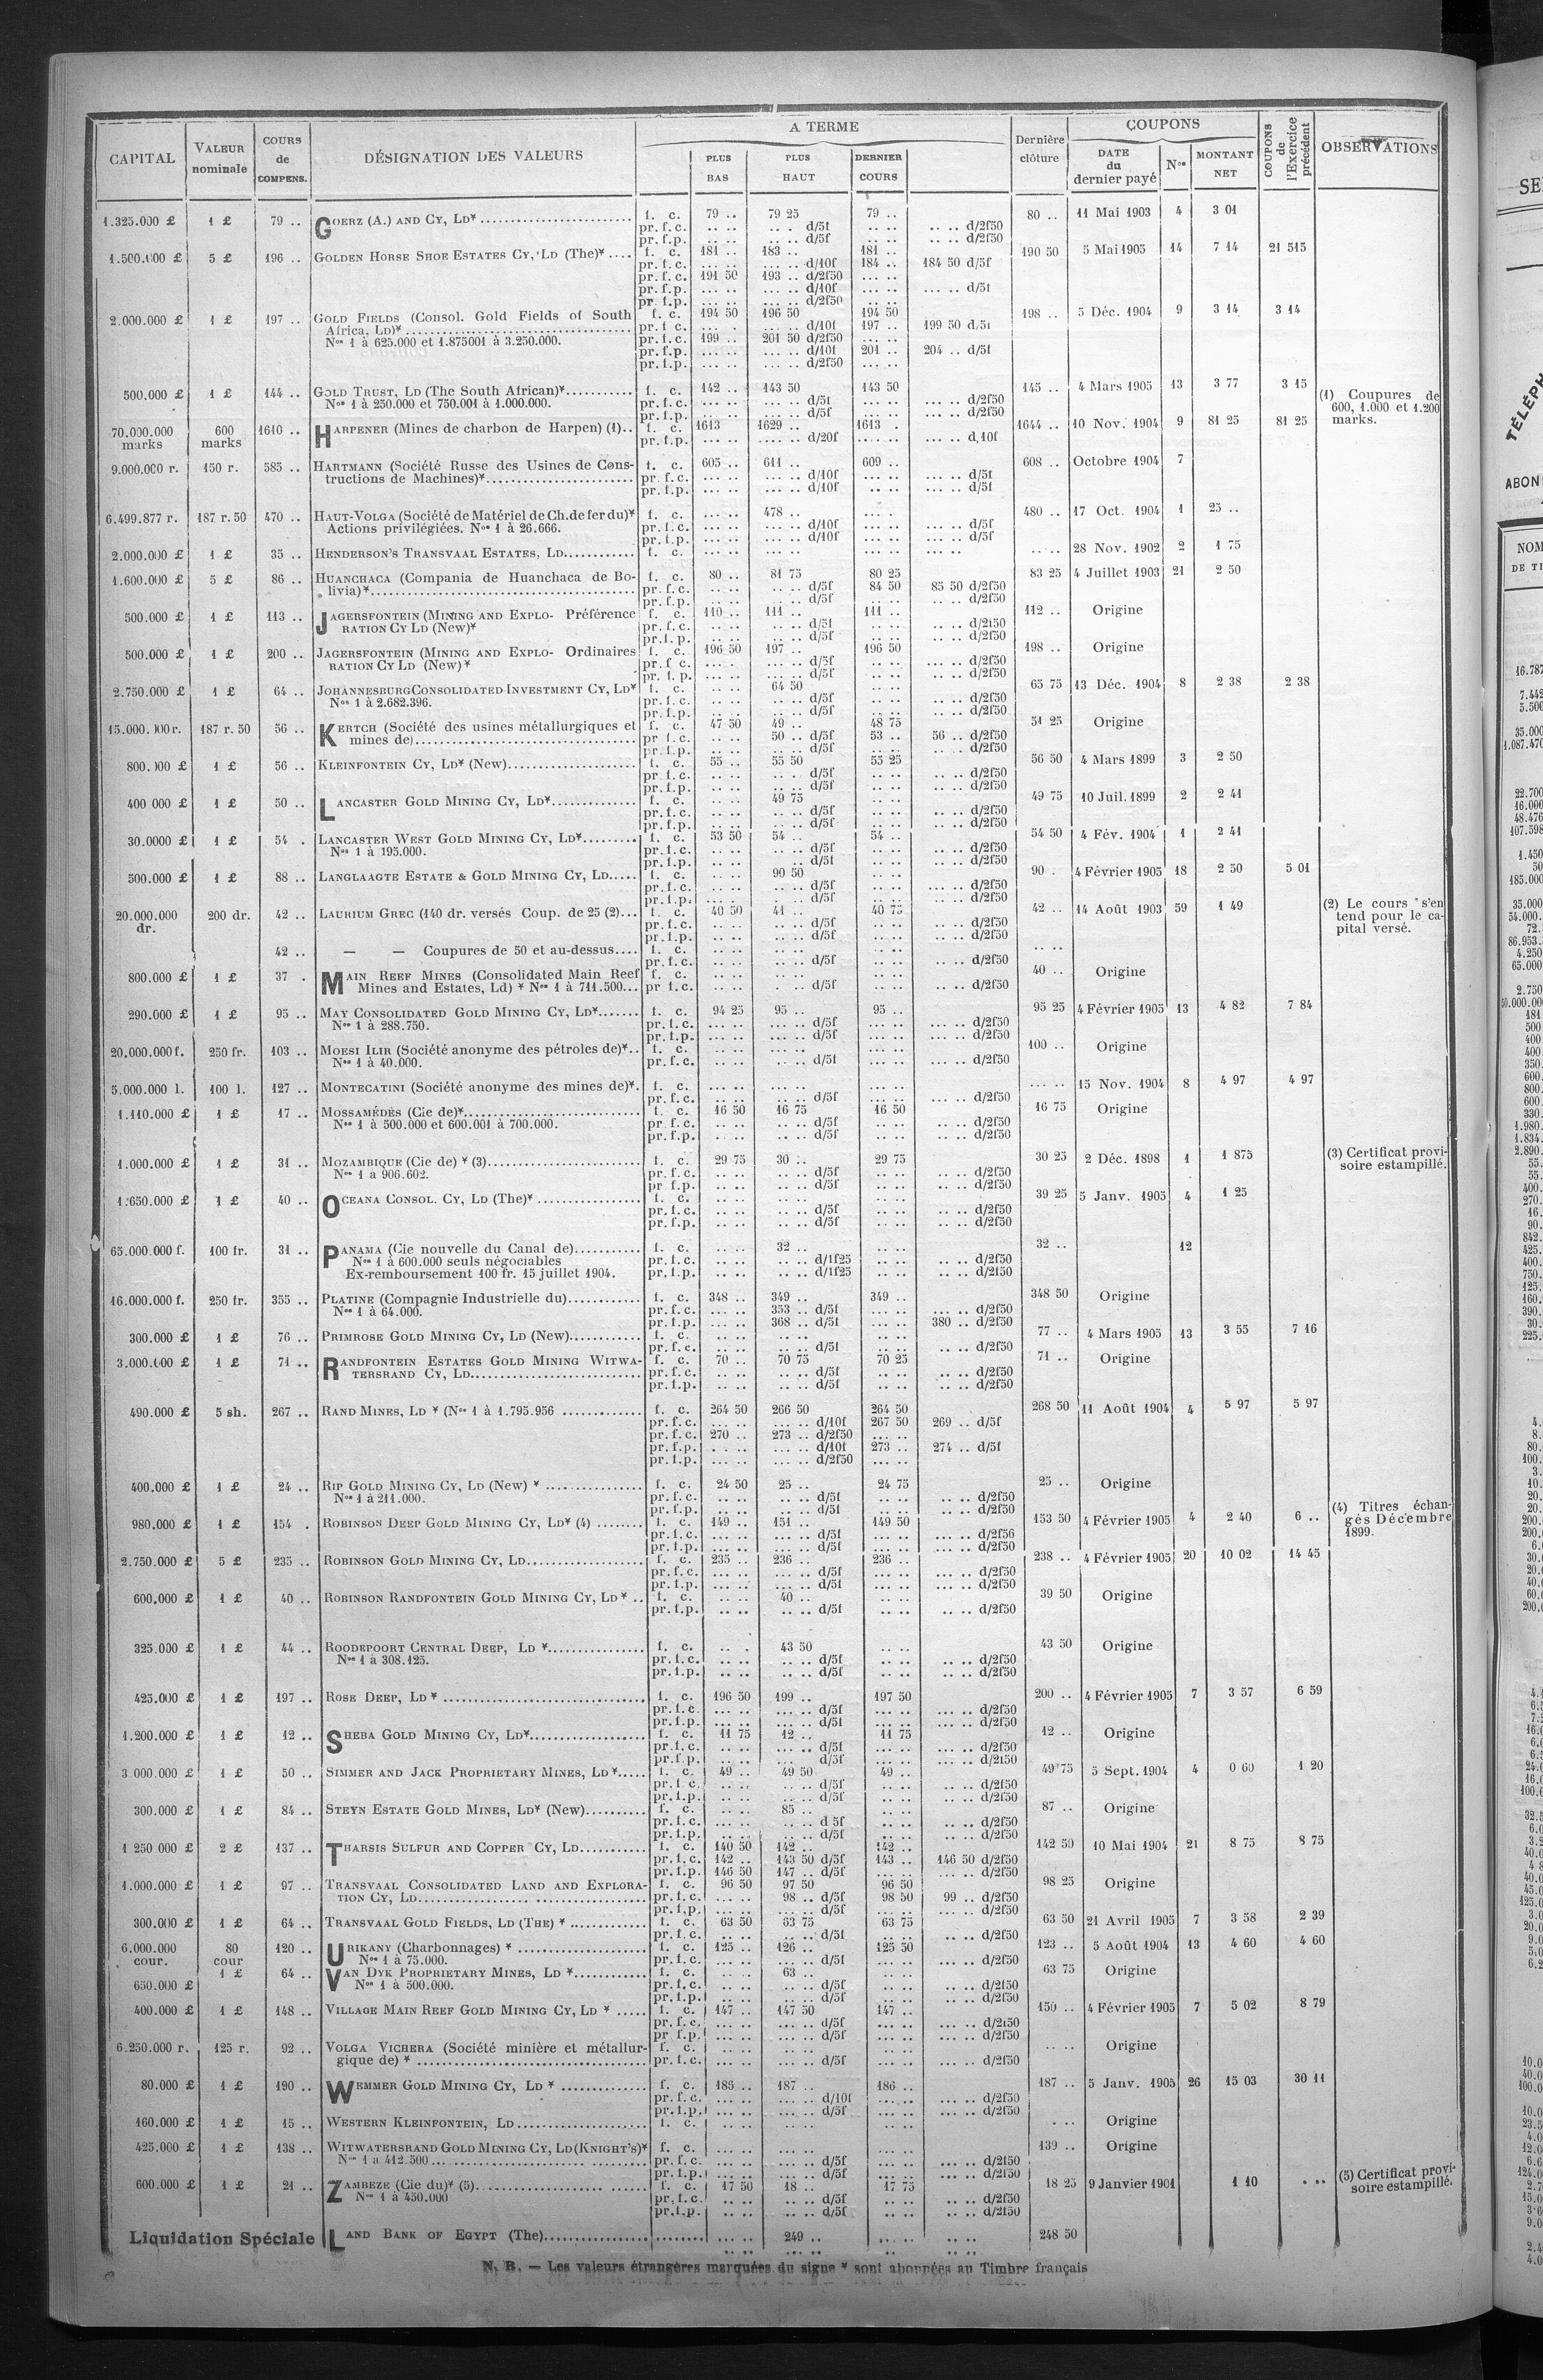 CAPITAL VALEUR nominale COURS de COMPENS. DÉSIGNATION DES VALEURS A TERME PLUS BAS PLUS HAUT DERNIER COURS Dernière clôture COUPONS DATE du dernier payé Nos MONTANT NET COUPONS de l'Exercice précédent OBSERVATIONS
1.325.000 £ 1 £ 79 .. GOERZ (A.) AND CY, LD* f. c. 79 .. 79 25 79 .. 80 .. 11 Mai 1903 4 3 01
pr. f.c. .. .. .. . d/5f .. .. .. .. d/2f50
pr. f.p. .. .. .. .. d/5f .. .. .. .. d/2f50
1.500.000 £ 5 £ 196 .. GOLDEN HORSE SHOE ESTATES CY, LD (The)* .... f. c. 181 .. 183 .. 181 .. 190 50 5 Mai 1905 14 7 14 21 515
pr. f.c. ... .. ... .. d/10f 184 .. 184 50 d/5f
pr. f.c. 191 50 193 .. d/2f50 ... ..
pr. f.p. ... .. ... .. d/10f ... .. ... .. d/5f
pr. f.p. ... .. ... .. d/2f50 ... ..
2.000.000 £ 1 £ 197 .. GOLD FIELDS (Consol. Gold Fields of South f. c. 194 50 196 50 194 50 198 .. 5 Déc. 1904 9 3 14 3 14
Africa, LD)* pr. f.c. ... . ... .. d/10f 197 .. 199 50 d/5f
Nos 1 à 625.000 et 1.875001 à 3.250.000. pr. f.c. 199 .. 201 50 d/2f50 ... ..
pr. f.p. ... .. ... .. d/10f 201 .. 204 .. d/5f
pr. f.p. ... .. ... .. d/2f50 ... ..
500.000 £ 1 £ 144 .. GOLD TRUST, LD (The South African)* f. c. 142 .. 143 50 143 50 145 .. 4 Mars 1905 13 3 77 3 15 (1) Coupures de
Nos 1 à 250.000 et 750.001 à 1.000.000. pr. f.c. d/5f d/2f50 600, 1.000 et 1.200
pr. f.p. d/5f d/2f50 marks.
70.000.000 marks 600 marks 1610 .. HARPENER (Mines de charbon de Harpen) (1).. f. c. 1613 1629 .. 1613 . 1644 .. 10 Nov. 1904 9 81 25 81 25
pr. f.p. d/20f d/10f
9.000.000 r. 150 r. 585 .. HARTMANN (Société Russe des Usines de Cons- f. c. 605 .. 611 .. 609 .. 608 .. Octobre 1904 7
tructions de Machines)* pr. f.c. d/10f d/5f
pr. f.p. d/10f d/5f
6.499.877 r. 187 r.50 470 .. HAUT-VOLGA (Société de Matériel de Ch. de fer du)* f. c. 478 .. 480 .. 17 Oct. 1904 1 25 ..
Actions privilégiées. Nos 1 à 26.666. pr. f.c. d/10f d/5f
pr. f.p. d/10f d/5f
2.000.000 £ 1 £ 35 .. HENDERSON'S TRANSVAAL ESTATES, LD f. c. 28 Nov. 1902 2 1 75
1.600.000 £ 5 £ 86 .. HUANCHACA (Compania de Huanchaca de Bo- f. c. 80 .. 81 75 80 25 83 25 4 Juillet 1903 21 2 50
livia)* pr. f.c. d/5f 84 50 85 50 d/2f50
pr. f.p. d/5f d/2f50
500.000 £ 1 £ 113 .. JAGERSFONTEIN (MINING AND EXPLO- Préférence f. c. 110 .. 111 .. 111 .. 112 .. Origine
RATION CY LD (New)* pr. f.c. d/5f d/2f50
pr. f.p. d/5f d/2f50
500.000 £ 1 £ 200 .. JAGERSFONTEIN (MINING AND EXPLO- Ordinaires f. c. 196 50 197 .. 196 50 198 .. Origine
RATION CY LD (New)* pr. f.c. d/5f d/2f50
pr. f.p. d/5f d/2f50
2.750.000 £ 1 £ 64 .. JOHANNESBURG CONSOLIDATED INVESTMENT CY, LD* f. c. 64 50 65 75 13 Déc. 1904 8 2 38 2 38
Nos 1 à 2.682.396. pr. f.c. d/5f d/2f50
pr. f.p. d/5f d/2f50
15.000.000 r. 187 r. 50 56 .. KERTCH (Société des usines métallurgiques et f. c. 47 50 49 .. 48 75 51 25 Origine
mines de) pr. f.c. 50 .. d/5f 53 .. 56 .. d/2f50
pr. f.p. d/5f d/2f50
800.000 £ 1 £ 56 .. KLEINFONTEIN CY, LD* (New) f. c. 55 .. 55 50 55 25 56 50 4 Mars 1899 3 2 50
pr. f.c. d/5f d/2f50
pr. f.p. d/5f d/2f50
400 000 £ 1 £ 50 .. LANCASTER GOLD MINING CY, LD* f. c. 49 75 49 75 10 Juil. 1899 2 2 41
pr. f.c. d/5f d/2f50
pr. f.p. d/5f d/2f50
30.0000 £ 1 £ 54 . LANCASTER WEST GOLD MINING CY, LD* f. c. 53 50 54 .. 54 .. 54 50 4 Fév. 1904 1 2 41
Nos 1 à 195.000. pr. f.c. d/5f d/2f50
pr. f.p. d/5f d/2f50
500.000 £ 1 £ 88 .. LANGLAAGTE ESTATE & GOLD MINING CY, LD f. c. 90 50 90 . 4 Février 1905 18 2 50 5 01
pr. f.c. d/5f d/2f50
pr. f.p. d/5f d/2f50
20.000.000 dr. 200 dr. 42 .. LAURIUM GREC (140 dr. versés Coup. de 25 (2)... f. c. 40 50 41 .. 40 75 42 .. 14 Août 1903 59 1 49 (2) Le cours s'en
pr. f.c. d/5f d/2f50 tend pour le ca-
pr. f.p. d/5f d/2f50 pital versé.
42 .. — — Coupures de 50 et au-dessus.... f. c.
pr. f.c. d/5f d/2f50
800.000 £ 1 £ 37 . MAIN REEF MINES (Consolidated Main Reef f. c. 40 .. Origine
Mines and Estates, Ld) * Nos 1 à 711.500... pr f.c. d/5f d/2f50
290.000 £ 1 £ 95 .. MAY CONSOLIDATED GOLD MINING CY, LD* f. c. 94 25 95 .. 95 .. 95 25 4 Février 1905 13 4 82 7 84
Nos 1 à 288.750. pr. f.c. d/5f d/2f50
pr. f.p. d/5f d/2f50
20.000.000 f. 250 fr. 103 .. MOESI ILIR (Société anonyme des pétroles de)* f. c. 100 .. Origine
Nos 1 à 40.000. pr. f.c. d/5f d/2f50
5.000.000 l. 100 l. 127 .. MONTECATINI (Société anonyme des mines de)* f. c. 15 Nov. 1904 8 4 97 4 97
pr. f.c. d/5f d/2f50
1.110.000 £ 1 £ 17 .. MOSSAMÉDÈS (Cie de)* f. c. 16 50 16 75 16 50 16 75 Origine
Nos 1 à 500.000 et 600.001 à 700.000. pr. f.c. d/5f d/2f50
pr. f.p. d/5f d/2f50
1.000.000 £ 1 £ 31 .. MOZAMBIQUE (Cie de) * (3) f. c. 29 75 30 .. 29 75 30 25 2 Déc. 1898 1 1 875 (3) Certificat provi-
Nos 1 à 906.602. pr. f.c. d/5f d/2f50 soire estampillé.
pr. f.p. d/5f d/2f50
1.650.000 £ 1 £ 40 .. OCEANA CONSOL. CY, LD (The)* f. c. 39 25 5 Janv. 1905 4 1 25
pr. f.c. d/5f d/2f50
pr. f.p. d/5f d/2f50
65.000.000 f. 100 fr. 31 .. PANAMA (Cie nouvelle du Canal de) f. c. 32 .. 32 .. 12
Nos 1 à 600.000 seuls négociables pr. f.c. d/1f25 d/2f50
Ex-remboursement 100 fr. 15 juillet 1904. pr. f.p. d/1f25 d/2f50
16.000.000 f. 250 fr. 355 .. PLATINE (Compagnie Industrielle du) f. c. 348 .. 349 .. 349 .. 348 50 Origine
Nos 1 à 64.000. pr. f.c. 353 .. d/5f d/2f50
pr. f.p. 368 .. d/5f 380 .. d/2f50
300.000 £ 1 £ 76 .. PRIMROSE GOLD MINING CY, LD (New) f. c. 77 .. 4 Mars 1905 13 3 55 7 16
pr. f.c. d/5f d/2f50
3.000.000 £ 1 £ 71 .. RANDFONTEIN ESTATES GOLD MINING WITWA- f. c. 70 .. 70 75 70 25 71 .. Origine
TERSRAND CY, LD pr. f.c. d/5f d/2f50
pr. f.p. d/5f d/2f50
490.000 £ 5 sh. 267 .. RAND MINES, LD * (Nos 1 à 1.795.956 f. c. 264 50 266 50 264 50 268 50 11 Août 1904 4 5 97 5 97
pr. f.c. d/10f 267 50 269 .. d/5f
pr. f.c. 270 .. 273 .. d/2f50
pr. f.p. d/10f 273 .. 274 .. d/5f
pr. f.p. d/2f50
400.000 £ 1 £ 24 .. RIP GOLD MINING CY, LD (New) * f. c. 24 50 25 .. 24 75 25 .. Origine
Nos 1 à 211.000. pr. f.c. d/5f d/2f50
pr. f.p. d/5f d/2f50
980.000 £ 1 £ 154 . ROBINSON DEEP GOLD MINING CY, LD* (4) f. c. 149 .. 151 .. 149 50 153 50 4 Février 1905 4 2 40 6 .. (4) Titres échan-
pr. f.c. d/5f d/2f50 gés Décembre
pr. f.p. d/5f d/2f50 1899.
2.750.000 £ 5 £ 235 .. ROBINSON GOLD MINING CY, LD f. c. 235 .. 236 .. 236 .. 238 .. 4 Février 1905 20 10 02 14 45
pr. f.c. d/5f d/2f50
pr. f.p. d/5f d/2f50
600.000 £ 1 £ 40 .. ROBINSON RANDFONTEIN GOLD MINING CY, LD * .. f. c. 40 .. 39 50 Origine
pr. f.p. d/5f d/2f50
325.000 £ 1 £ 44 .. ROODEPOORT CENTRAL DEEP, LD * f. c. 43 50 43 50 Origine
Nos 1 à 308.125. pr. f.c. d/5f d/2f50
pr. f.p. d/5f d/2f50
425.000 £ 1 £ 197 .. ROSE DEEP, LD * f. c. 196 50 199 .. 197 50 200 .. 4 Février 1905 7 3 57 6 59
pr. f.c. d/5f d/2f50
pr. f.p. d/5f d/2f50
1.200.000 £ 1 £ 12 .. SHEBA GOLD MINING CY, LD* f. c. 11 75 12 .. 11 75 12 .. Origine
pr. f.c. d/5f d/2f50
pr. f.p. d/5f d/2f50
3.000.000 £ 1 £ 50 .. SIMMER AND JACK PROPRIETARY MINES, LD* f. c. 49 .. 49 50 49 .. 49 75 5 Sept. 1904 4 0 60 1 20
pr. f.c. d/5f d/2f50
pr. f.p. d/5f d/2f50
300.000 £ 1 £ 84 .. STEYN ESTATE GOLD MINES, LD* (New) f. c. 85 .. 87 .. Origine
pr. f.c. d 5f d/2f50
pr. f.p. d/5f d/2f50
1 250 000 £ 2 £ 137 .. THARSIS SULFUR AND COPPER CY, LD f. c. 140 50 142 .. 142 .. 142 50 10 Mai 1904 21 8 75 8 75
pr. f.c. 142 .. 143 50 d/5f 143 .. 146 50 d/2f50
pr. f.p. 146 50 147 .. d/5f d/2f50
1.000.000 £ 1 £ 97 .. TRANSVAAL CONSOLIDATED LAND AND EXPLORA- f. c. 96 50 97 50 96 50 98 25 Origine
TION CY, LD pr. f.c. 98 .. d/5f 98 50 99 .. d/2f50
pr. f.p. d/5f d/2f50
300.000 £ 1 £ 64 .. TRANSVAAL GOLD FIELDS, LD (THE) * f. c. 63 50 63 75 63 75 63 50 21 Avril 1905 7 3 58 2 39
pr. f.c. d/5f d/2f50
6.000.000 cour. 80 cour 120 .. URIKANY (Charbonnages) * f. c. 125 .. 126 .. 125 50 123 .. 5 Août 1904 13 4 60 4 60
Nos 1 à 75.000. pr. f.c. d/5f d/2f50
650.000 £ 1 £ 64 .. VAN DYK PROPRIETARY MINES, LD * f. c. 63 .. 63 75 Origine
Nos 1 à 500.000. pr. f.c. d/5f d/2f50
pr. f.p. d/5f d/2f50
400.000 £ 1 £ 148 .. VILLAGE MAIN REEF GOLD MINING CY, LD * f. c. 147 .. 147 50 147 .. 150 .. 4 Février 1905 7 5 02 8 79
pr. f.c. d/5f d/2f50
pr. f.p. d/5f d/2f50
6.250.000 r. 125 r. 92 .. VOLGA VICHERA (Société minière et métallur- f. c. Origine
gique de) * pr. f.c. d/5f d/2f50
80.000 £ 1 £ 190 .. WEMMER GOLD MINING CY, LD * f. c. 185 .. 187 .. 186 .. 187 .. 5 Janv. 1905 26 15 03 30 11
pr. f.c. d/10f d/2f50
pr. f.p. d/5f d/2f50
160.000 £ 1 £ 15 .. WESTERN KLEINFONTEIN, LD f. c. Origine
425.000 £ 1 £ 138 .. WITWATERSRAND GOLD MINING CY, LD (KNIGHT'S)* f. c. 139 .. Origine
Nos 1 à 412.500 pr. f.c. d/5f d/2f50
pr. f.p. d/5f d/2f50
600.000 £ 1 £ 21 .. ZAMBEZE (Cie du)* (5) f. c. 17 50 18 .. 17 75 18 25 9 Janvier 1901 1 10 (5) Certificat provi-
Nos 1 à 450.000 pr. f.c. d/5f d/2f50 soire estampillé.
pr. f.p. d/5f d/2f50
Liquidation Spéciale LAND BANK OF EGYPT (The) 249 .. 248 50
N. B. — Les valeurs étrangères marquées du signe * sont abonnées au Timbre français